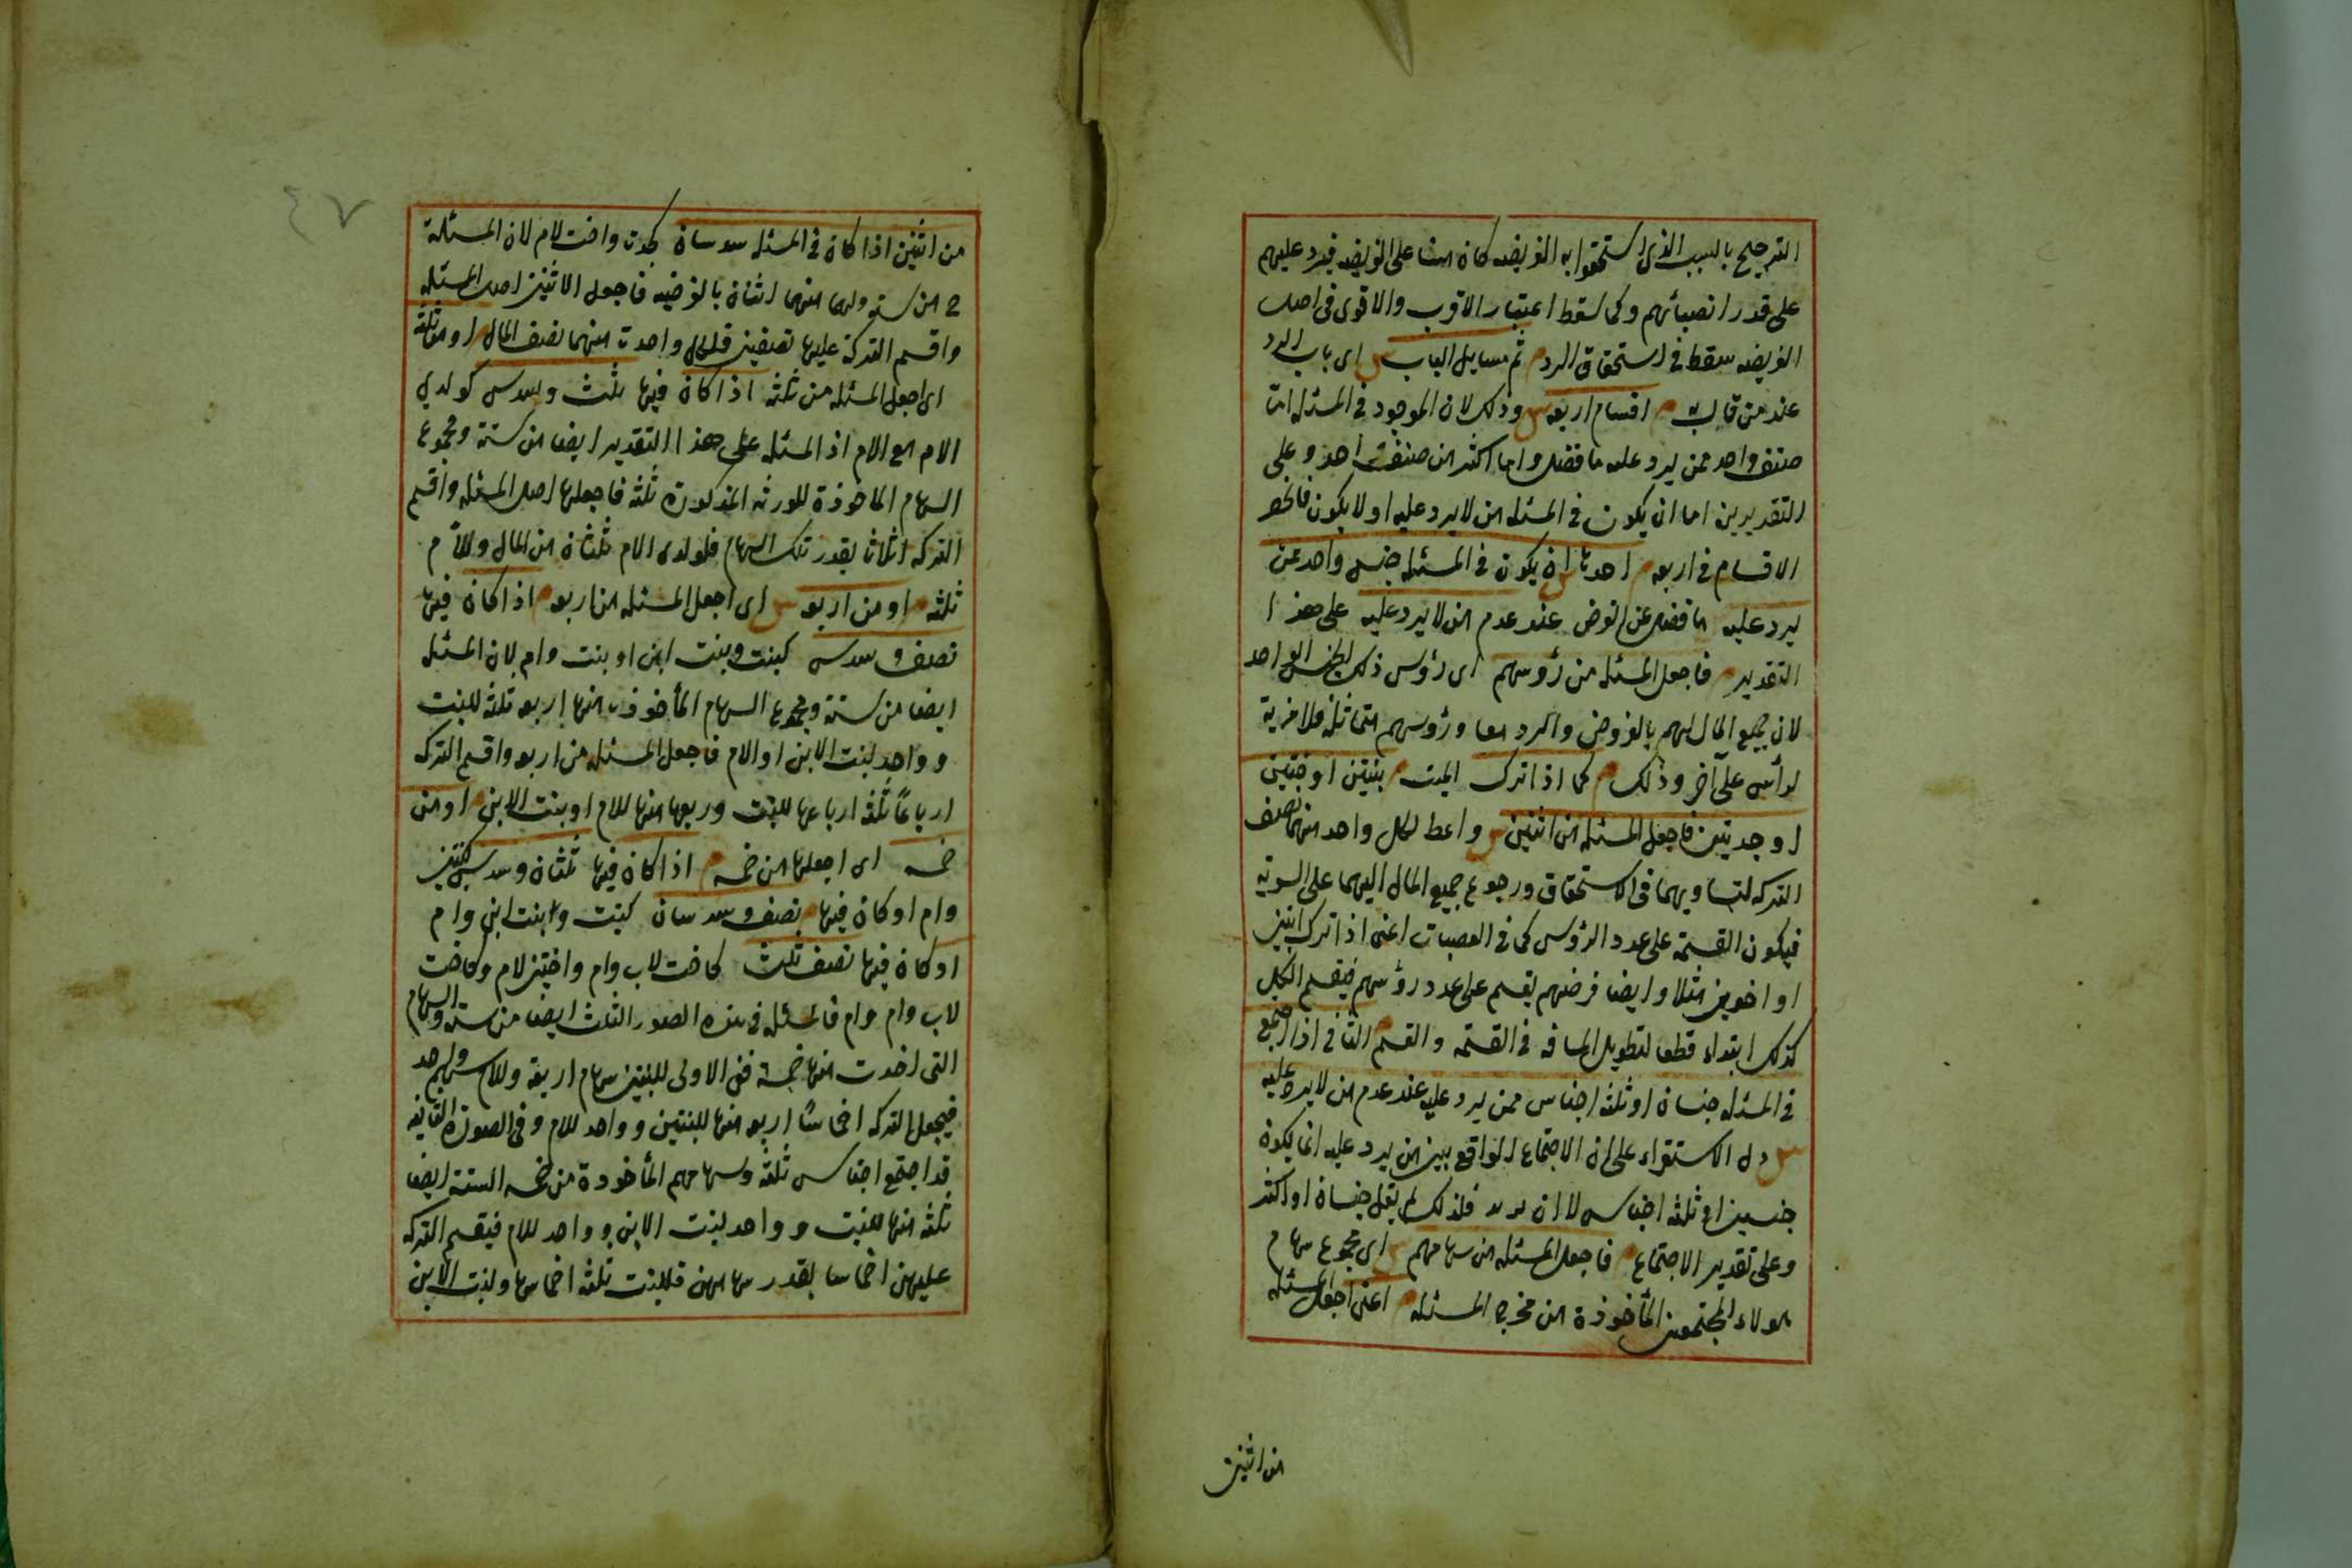 الترجيح بالسبب الذى استحقوا به الفريضه كان مبنيا على الفريضه فيرد عليهم
على قدر انصبائهم وكما سقط اعتبار الاقرب والاقوى فى اصل
الفريضه سقط فى استحقاق الرد م ثم مسايل الباب س اى باب الرد
عند من قال به م اقسام اربعه س وذلك لان الموجود فى المسئله اما
صنف واحد ممن يرد عليه ما فضل واما اكثر من صنف واحد وعلى
التقديرين اما ان يكون فى المسئله من لا يرد عليه او لا يكون فانحصر
الاقسام فى اربعه م احدها ان يكون فى المسئله جنس واحد ممن
يرد عليه ما فضل عن الفروض عند عدم من لا يرد عليه على هذا
التقدير م فاجعل المسئله من رؤوسهم اى رؤس ذلك الجنس الواحد
لان جميع المال لهم بالفروض والرد معا ورؤوسهم متماثله فلا مزية
لرأس على آخر وذلك م كما اذا ترك الميت م بنتين او اختين
او جدتين فاجعل المسئله من اثنين س واعط لكل واحد منهما نصف
التركه لتساويهما فى الاستحقاق ورجوع جميع المال اليهما على السوية
فيكون القسمة على عدد الرؤس كما فى العصبات اعنى اذا ترك ابنين
او اخوين مثلا وايضا فرضهم يقسم على عدد رؤسهم فيقسم الكل
كذلك ابتداء قطعا لتطويل المسافه فى القسمه والقسم الثانى اذا اجتمع
فى المسئله جنسان او ثلثه اجناس ممن يرد عليه عند عدم من لا يرد عليه
س دل الاستقراء على ان الاجتماع الواقع بين من يرد عليه انما يكون
جنسين او ثلثه اجناس لا ازيد فلذلك لم يقل جنسان او اكثر
وعلى تقدير الاجتماع م فاجعل المسئله من سهامهم س اى مجموع سهام
هولاء المجتمعين المأخوذة من مخرج المسئله م اعنى اجعل المسئله
من اثنين
٤٧
من اثنين اذا كان فى المسئله سدسان كجدت واخت لام لان المسئلة
ح من سته ولهما منها اثنان بالفرضيه فاجعل الاثنين اصل المسئله
واقسم التركة عليها نصفين فلكل واحدت منهما نصف المال م او من ثلثه
اى اجعل المسئله من ثلثه اذا كان فيها ثلث وسدس كولدى
الام مع الام اذ المسئله على هذا التقدير ايضا من ستة ومجموع
السهام الماخوذة للورثه المذكورة ثلثه فاجعلها اصل المسئله واقسم
التركه اثلاثا بقدر تلك السهام فلولدى الام ثلثان من المال وللأم
ثلثه م او من اربعه س اى اجعل المسئله من اربعه م اذا كان فيها
نصف وسدس كبنت وبنت ابن او بنت وام لان المسئله
ايضا من ستة ومجموع السهام المأخوذت منها اربعه ثلثه للبنت
وواحد لبنت الابن او الام فاجعل المسئله من اربعه واقسم التركه
ارباعًا ثلثه ارباعها للبنت وربعها منها للام او بنت الابن م او من
خمسه اى اجعلها من خمسه م اذا كان فيها ثلثان وسدس كبنتين
وام او كان فيها م نصف وسدسان كبنت وبنت ابن وام
او كان فيها نصف وثلث كاخت لاب وام واختين لام وكاخت
لاب وام وام فالمسئله فى هذه الصور الثلث ايضا من سته والسهام
التى اخذت منها خمسة ففى الاولى للبنتين سهام اربعة وللام سهم واحد
فيجعل التركه اخماسًا اربعه منها للبنتين وواحد للام وفى الصورة الثانيه
قد اجتمع اجناس ثلثه وسهامهم المأخوذة من خمسه الستة ايضا
ثلثه منها للبنت وواحد لبنت الابن وواحد للام فيقسم التركه
عليهن اخماسا بقدر سهامهن فللبنت ثلثه اخماسها ولبنت الابن